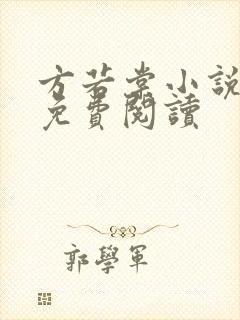 方若棠小說
免費閱讀
郭學軍